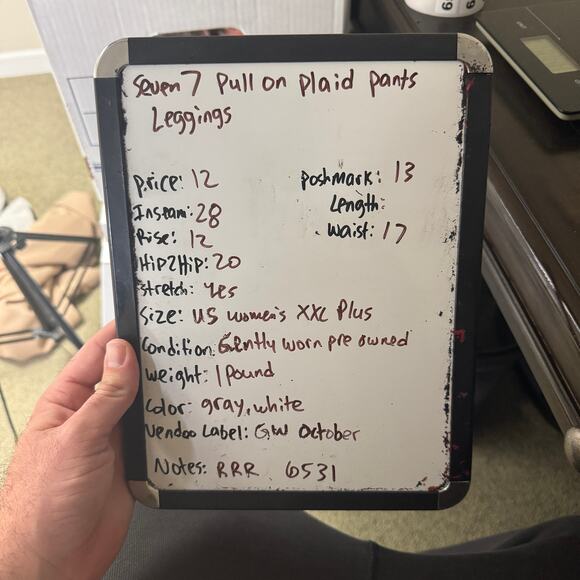 Seven7 Pull on Plaid pants
Leggings
price: 12
Poshmark: 13
Inseam: 28
Length:
Rise: 12
Waist: 17
Hip2Hip: 20
Stretch: Yes
Size: US women's XXL Plus
Condition: Gently worn pre owned
Weight: 1 Pound
Color: gray, white
Vendoo Label: GW October
Notes: RRR 6531